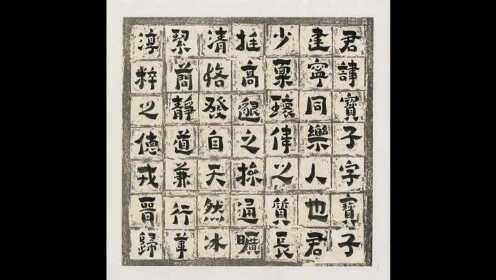 君諱寶子字寶子
建寧同樂人也君
少稟瓌偉之質長
挺高邈之操通曠
清恪發自天然冰
絜簡靜道兼行葦
淳粹之德戎晉歸